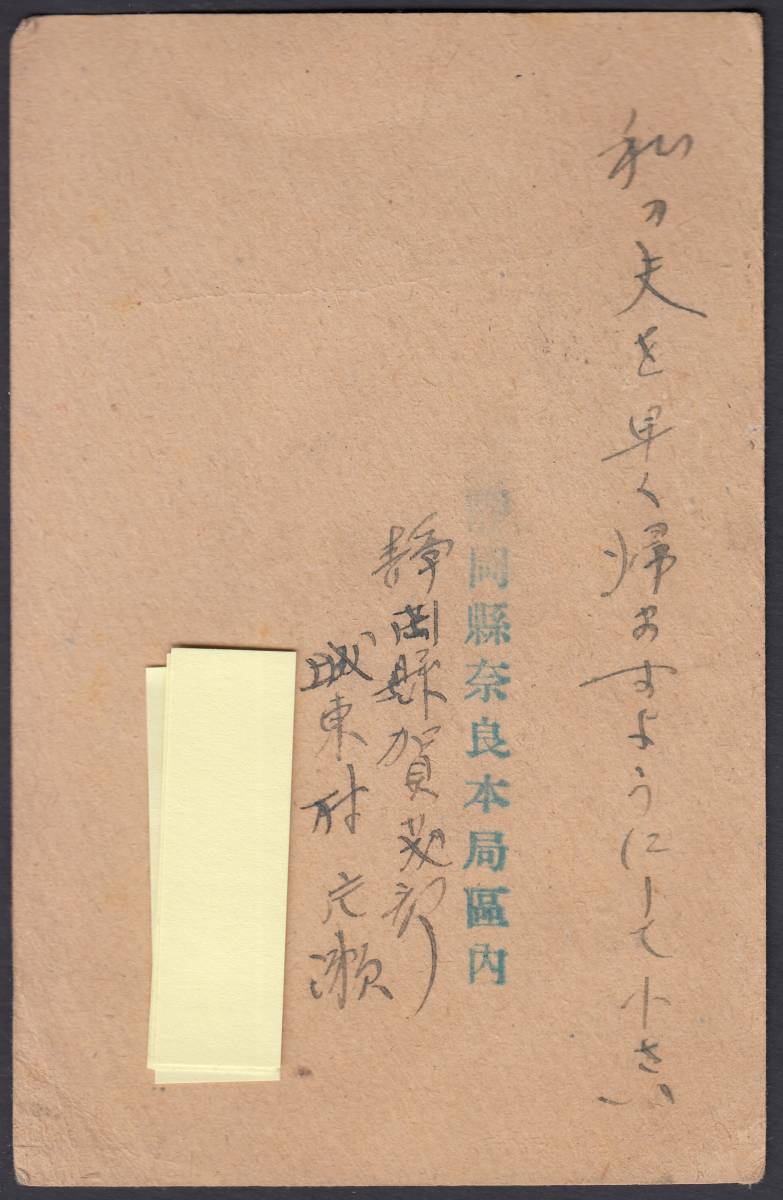 私の夫を早く帰ますようにして下さい
静岡縣奈良本局區内
静岡縣賀茂郡
城東村片瀬